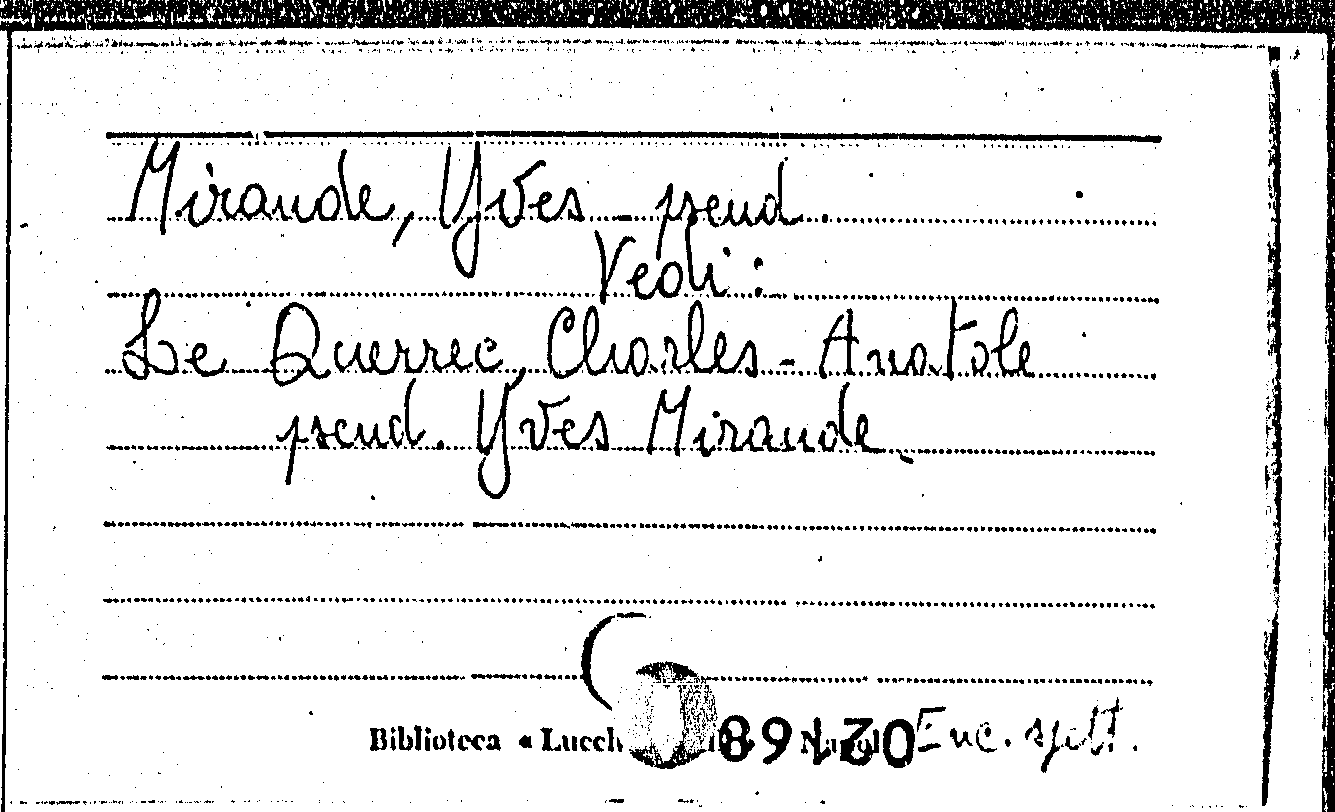 Mirande, Yves - pseud.
Vedi:
Le Querrec, Charles-Anatole
pseud. Yves Mirande
Biblioteca « Lucch
Enc. spett.